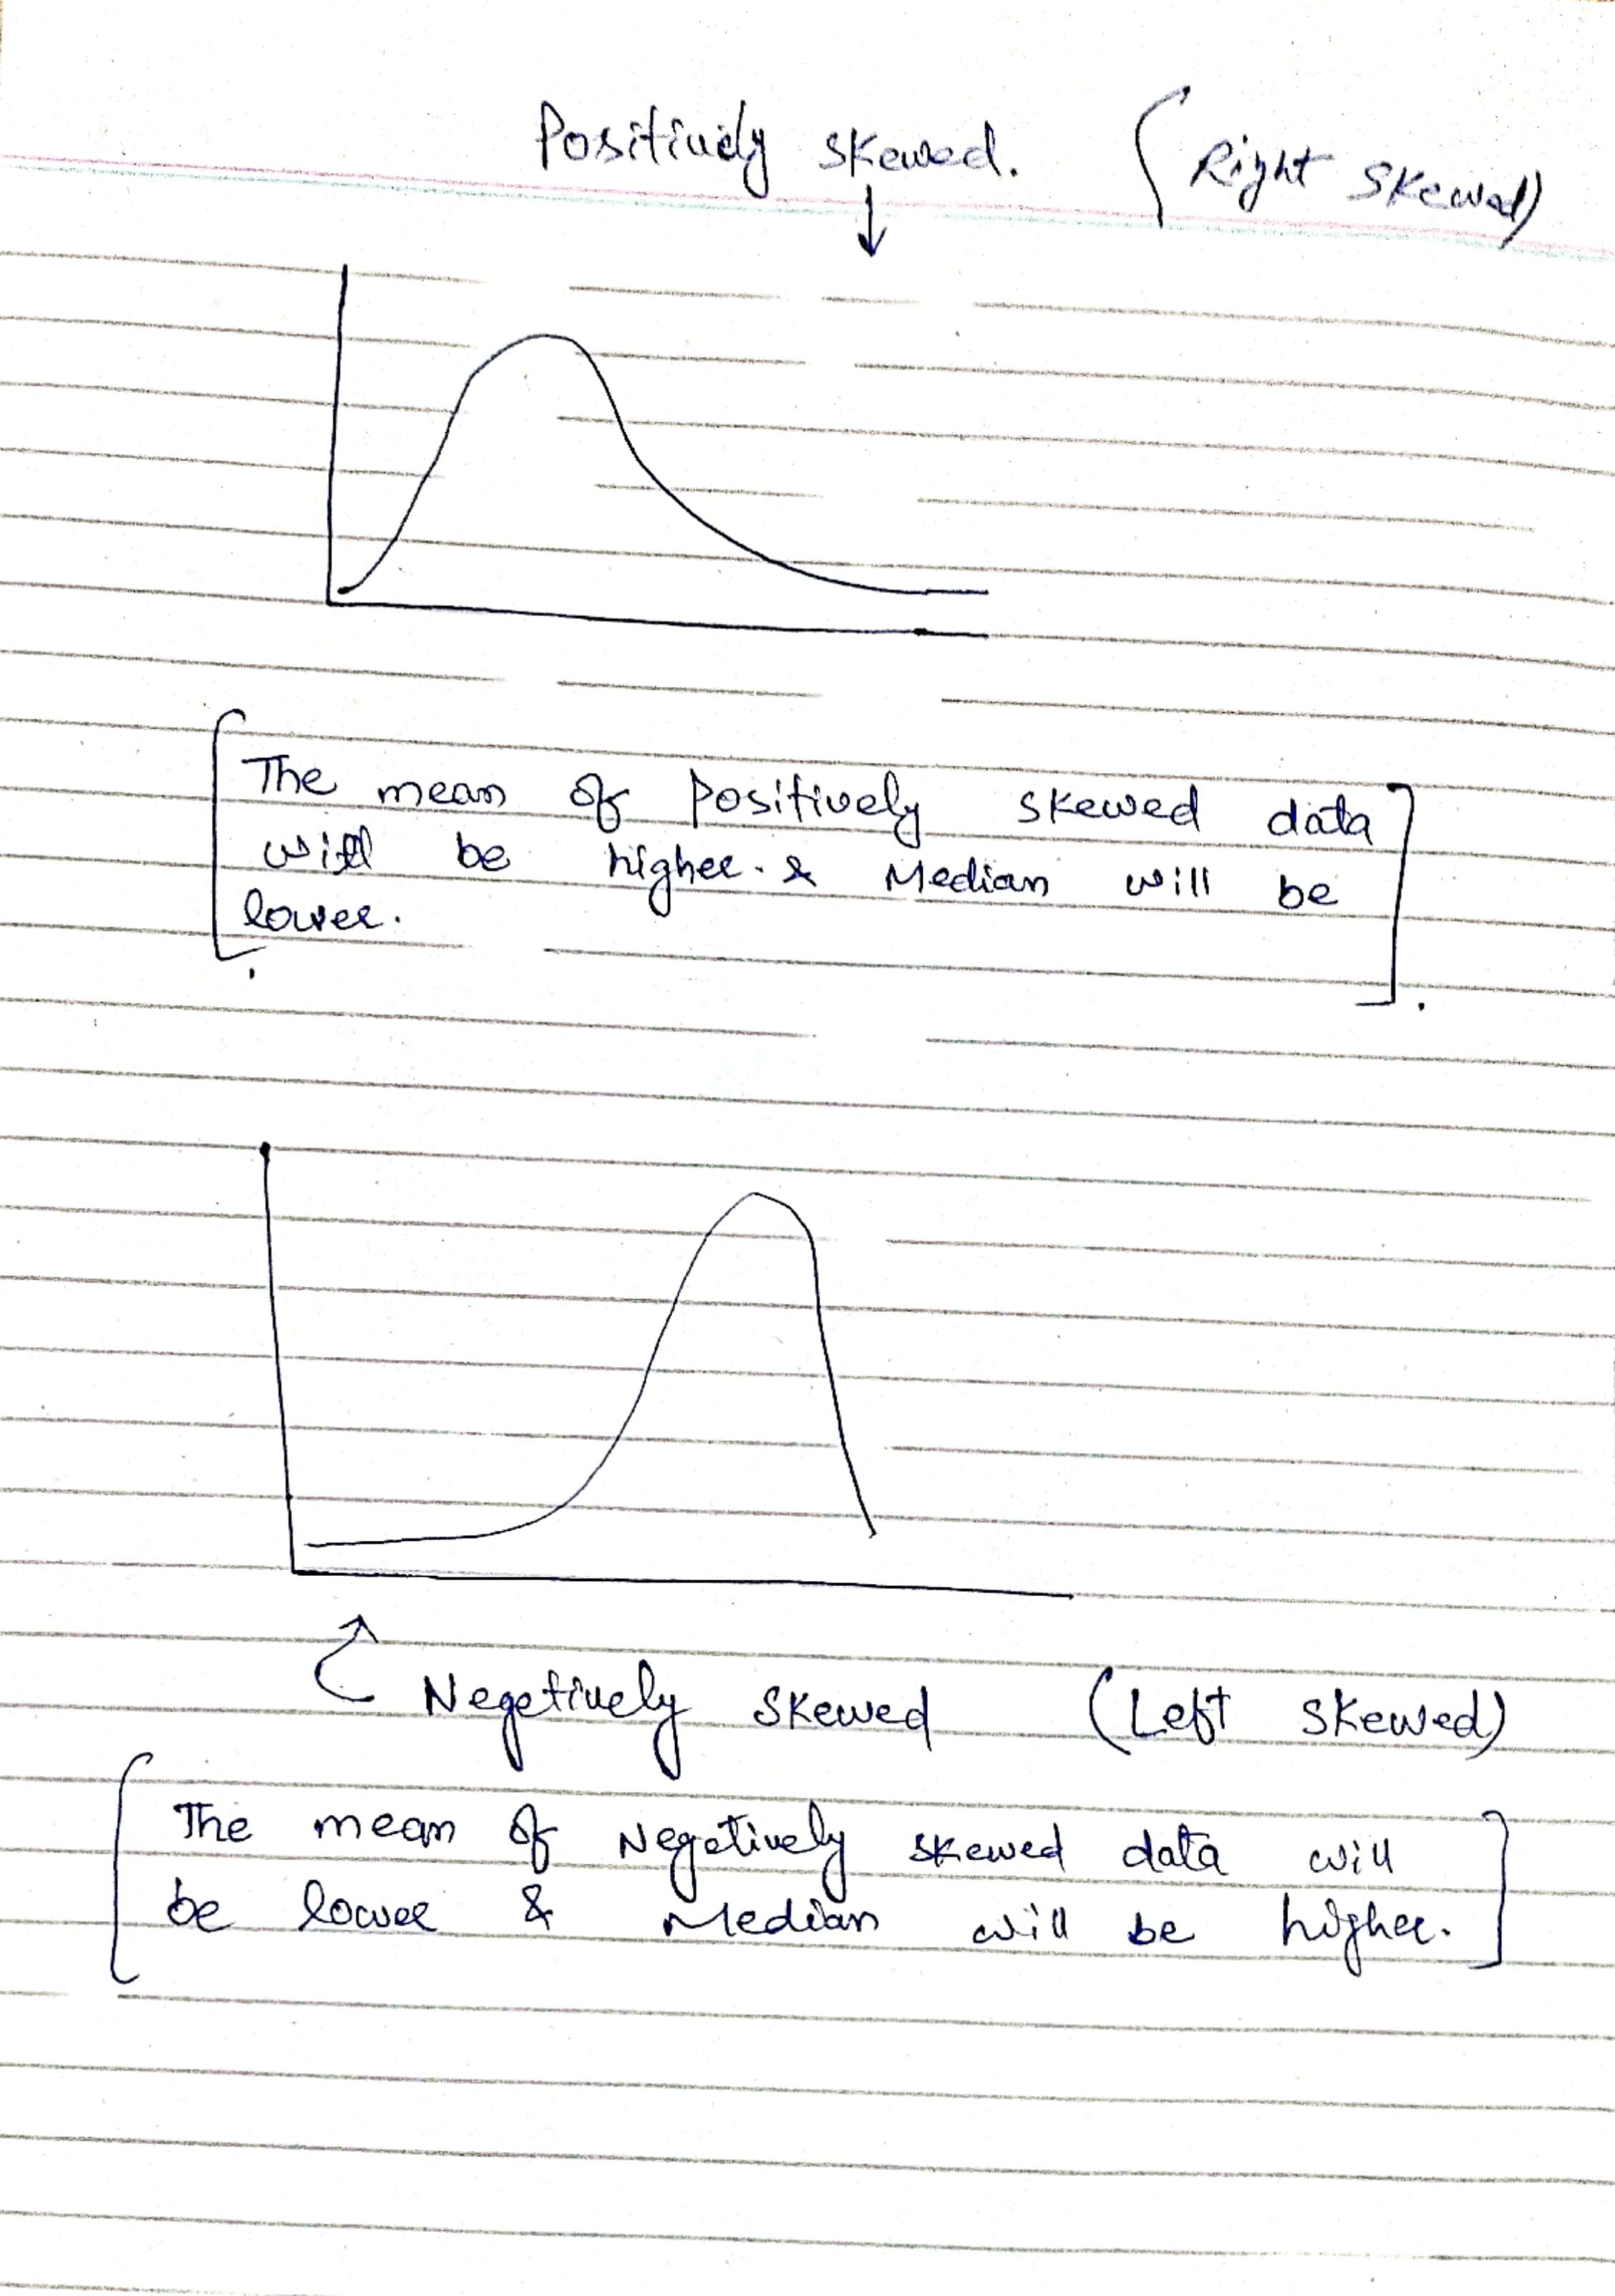 Positively skewed. (Right skewed)
The mean of Positively skewed data
will be higher. & Median will be
lower.
Negetively skewed (Left skewed)
The mean of Negetively skewed data will
be lower & Median will be higher.